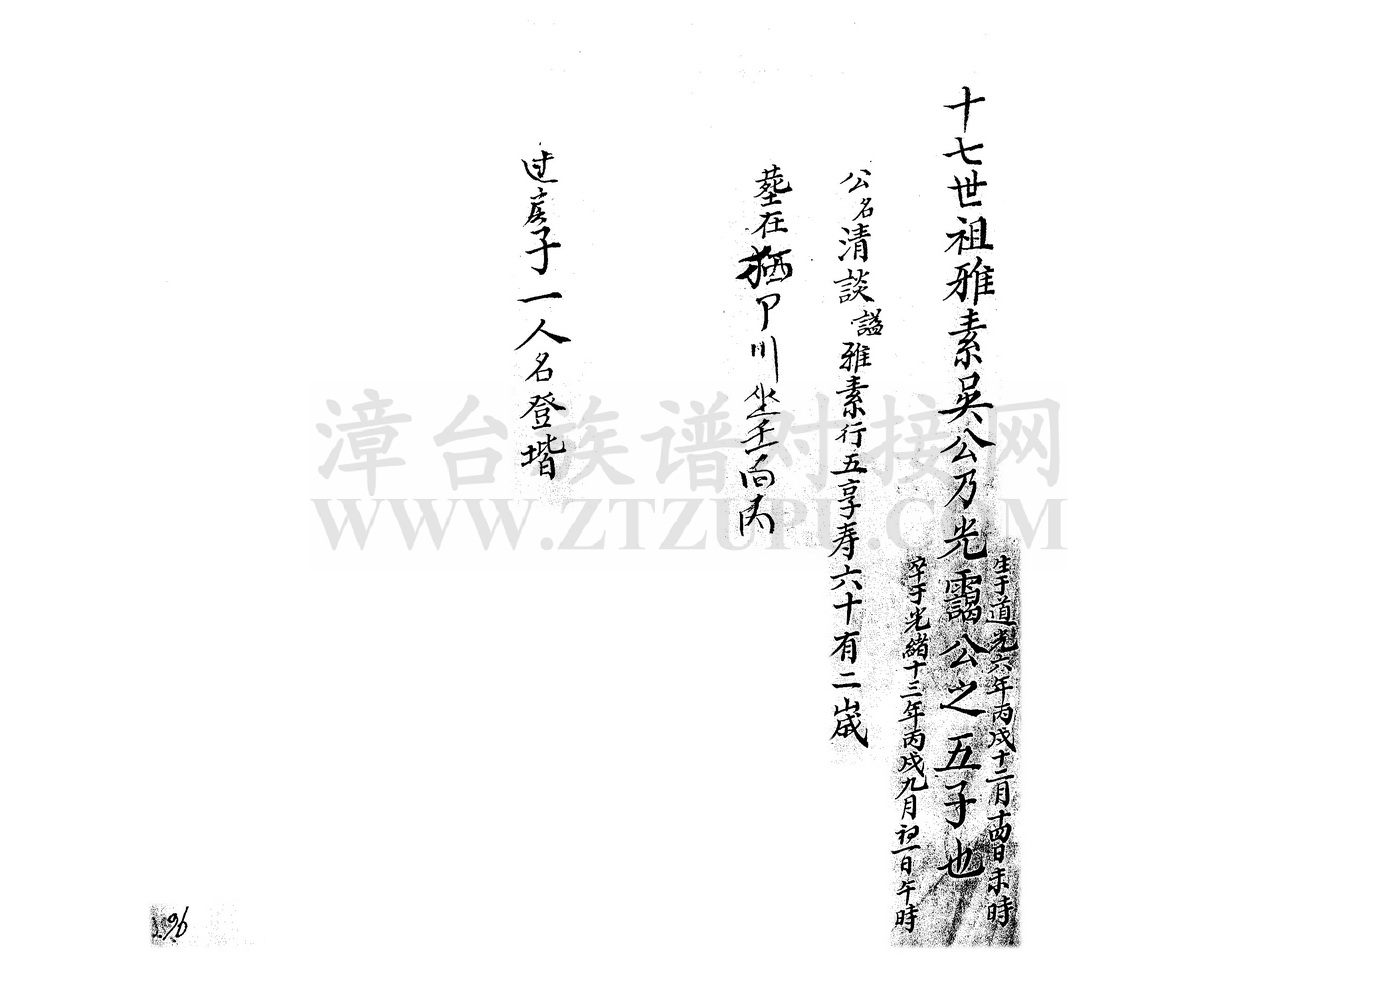 生于道光六年丙戌十二月十四日未時
十七世祖雅素吳公乃光靄公之五子也
卒于光緒十三年丙戌九月初一日午時
公名清談謚雅素行五享寿六十有二歲
墓在 川坐壬向丙
过房子一人名登堦
漳台族谱对接网
WWW.ZTZUPU.COM
96